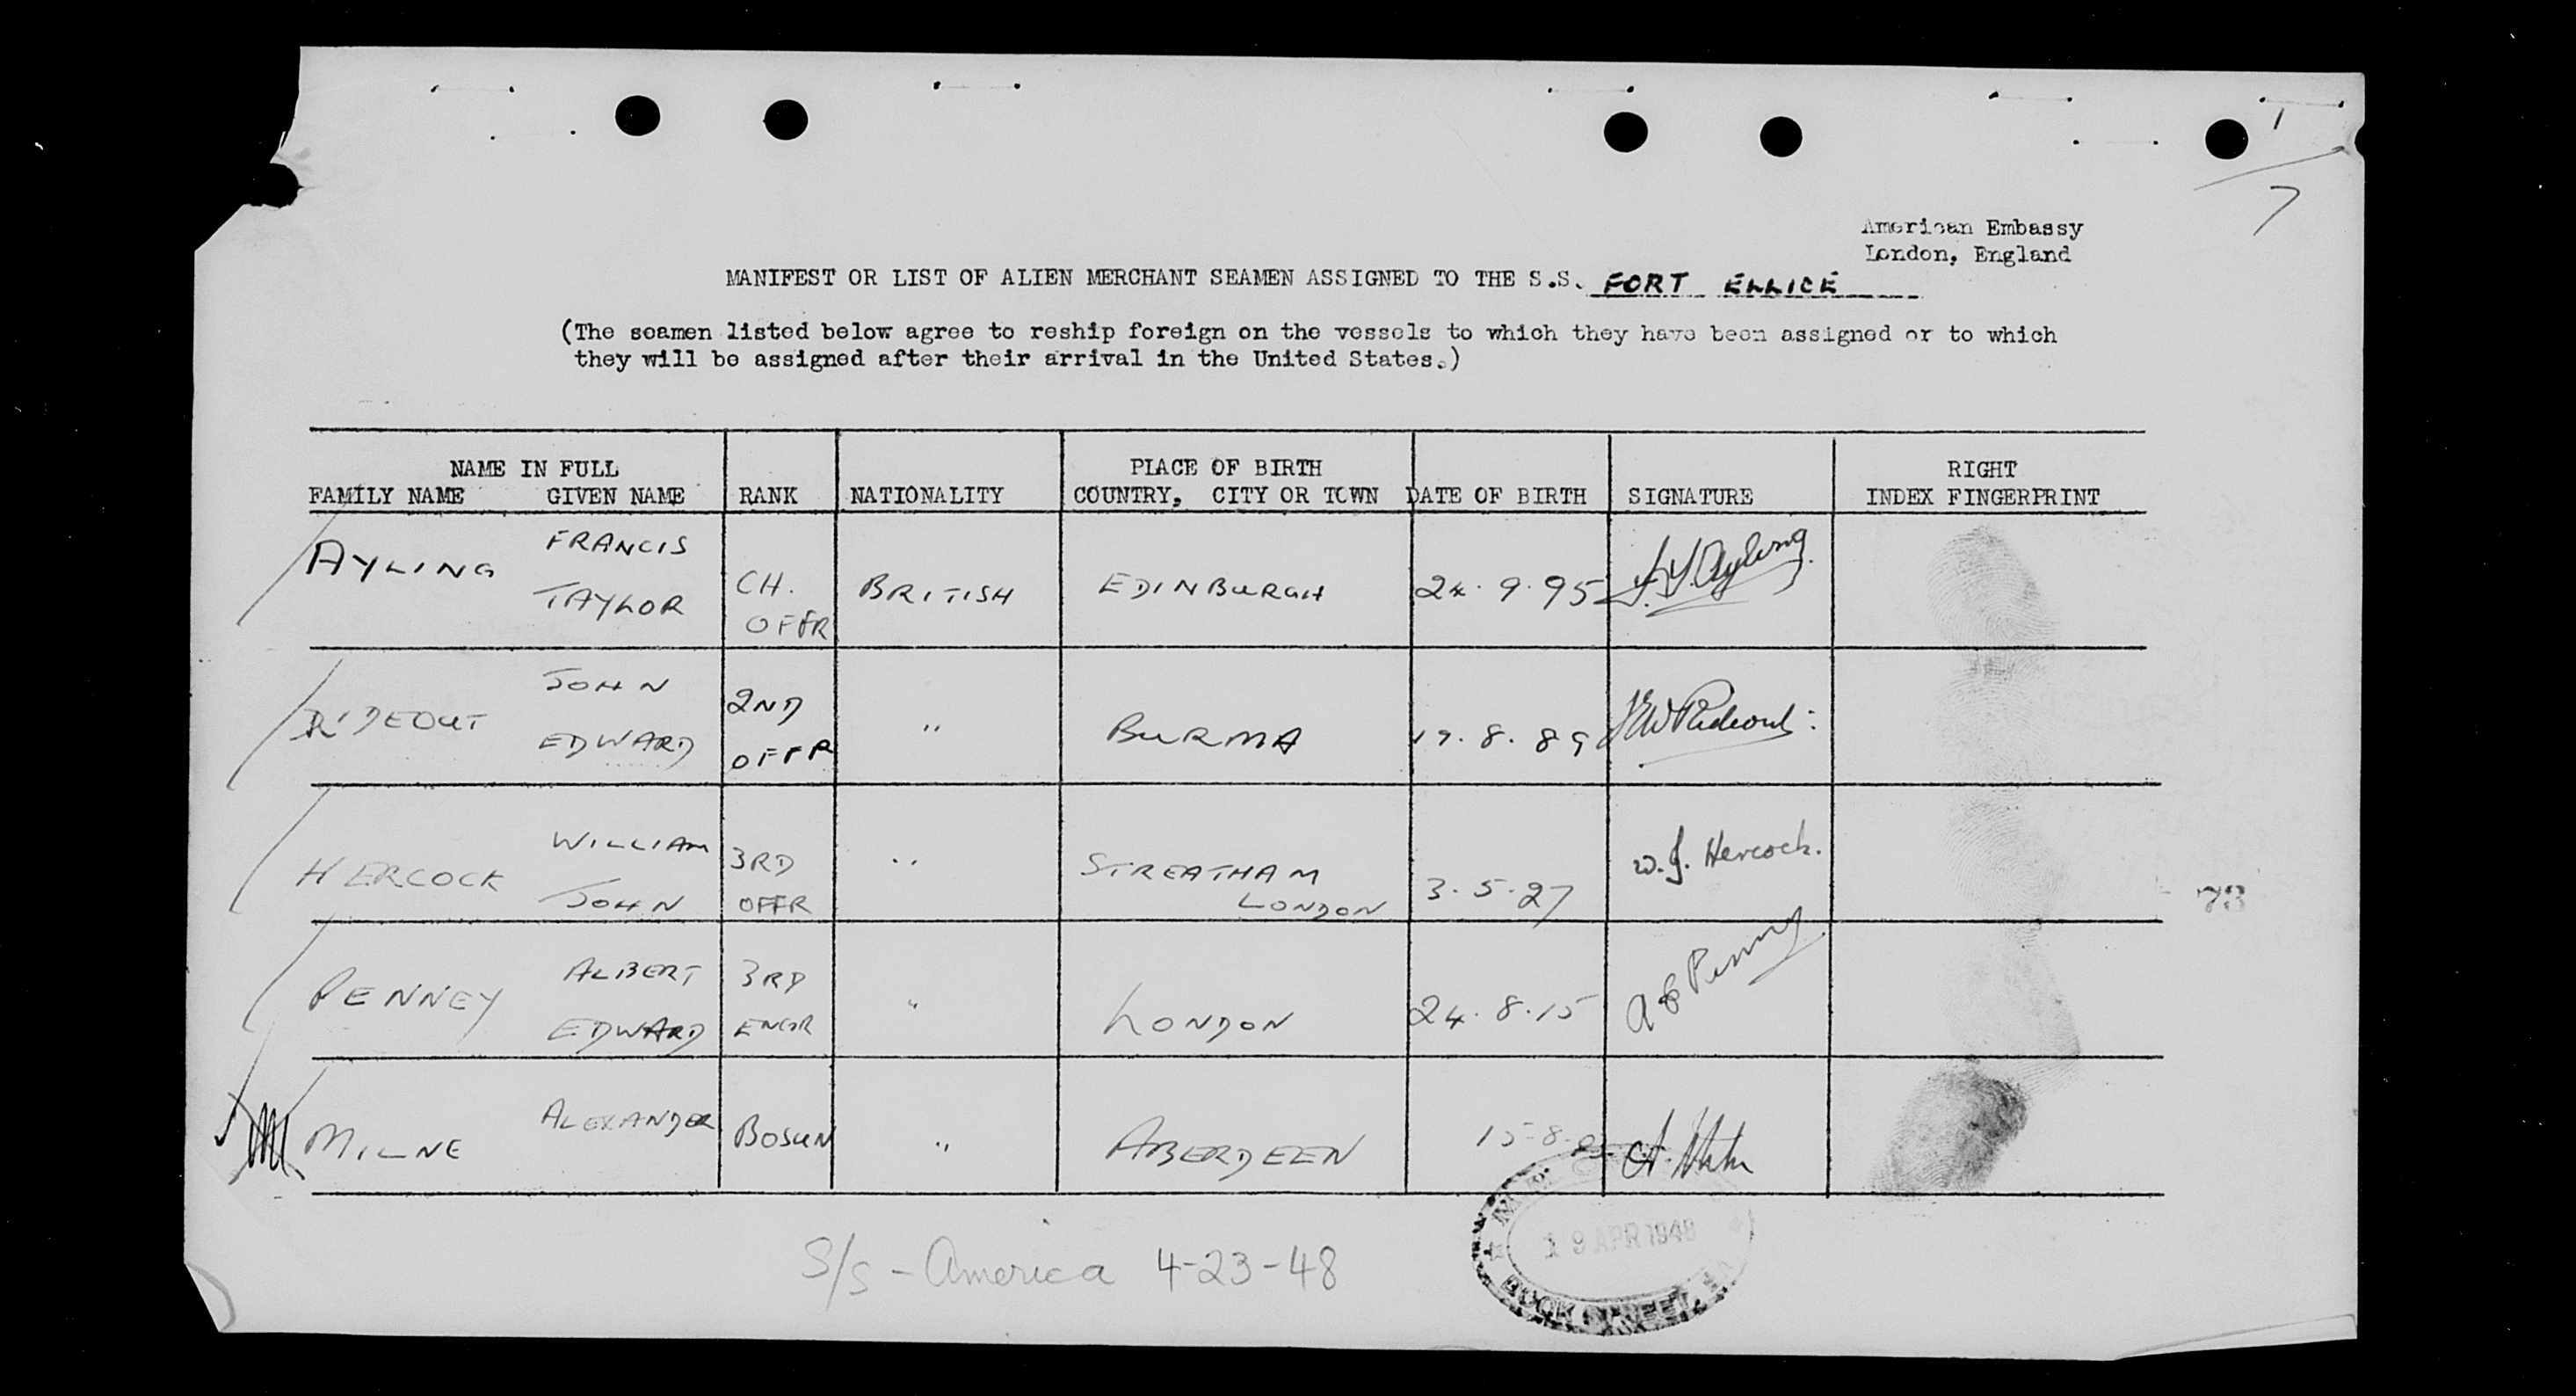 1
7
American Embassy
London, England
MANIFEST OR LIST OF ALIEN MERCHANT SEAMEN ASSIGNED TO THE S.S. FORT ELLICE
(The seamen listed below agree to reship foreign on the vessels to which they have been assigned or to which
they will be assigned after their arrival in the United States.)
NAME IN FULL PLACE OF BIRTH RIGHT
FAMILY NAME GIVEN NAME RANK NATIONALITY COUNTRY, CITY OR TOWN DATE OF BIRTH SIGNATURE INDEX FINGERPRINT
AYLING FRANCIS TAYLOR CH. OFFR BRITISH EDINBURGH 24.9.95 F.T. Ayling
RIDEOUT JOHN EDWARD 2ND OFFR " BURMA 19.8.89 J E W Rideout
HERCOCK WILLIAM JOHN 3RD OFFR " STREATHAM LONDON 3.5.27 W.J. Hercock.
73
PENNEY ALBERT EDWARD 3RD ENGR " LONDON 24.8.15 A E Penney
MILNE ALEXANDER BOSUN " ABERDEEN 15-8- A.
S/S - America 4-23-48
19 APR 1948